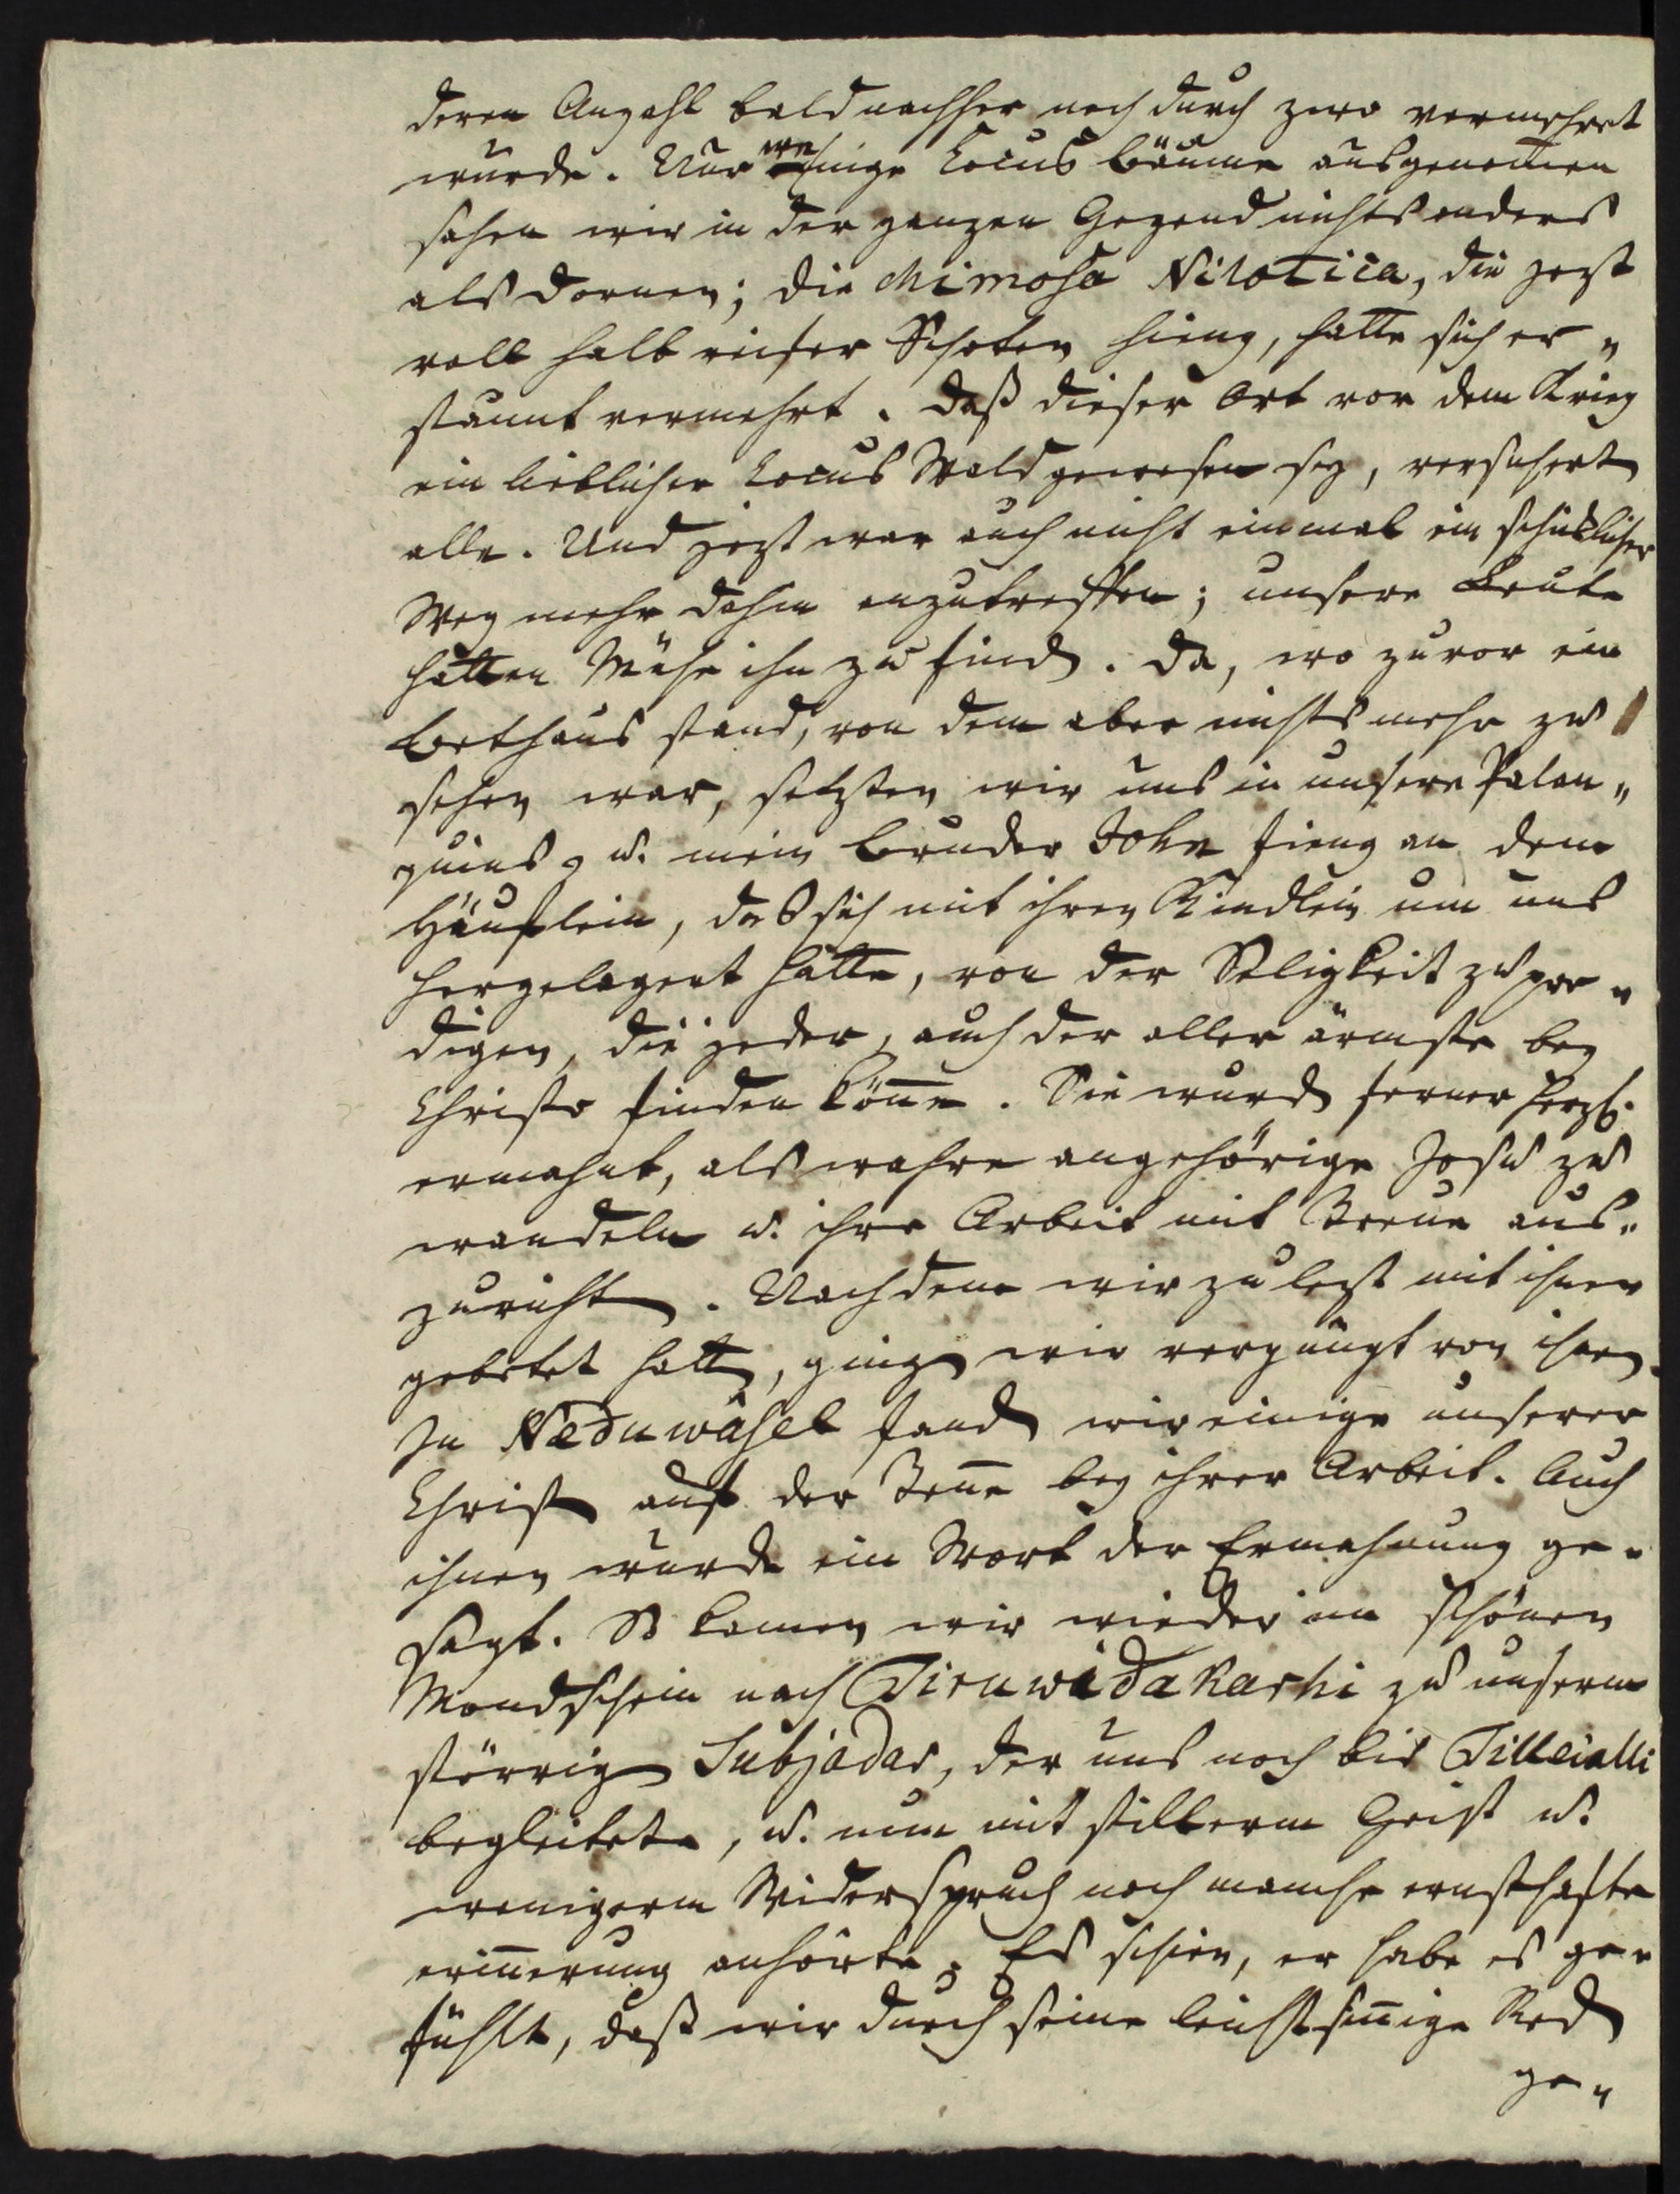 deren Anzahl bald nachher noch durch zwo vermehrt
wurde. Nur wenige Cocus bäume ausgenom̅en
sahen wir in der ganzen Gegend nichts anders
als dornen; die Mimosa Nilotica, die jezt
voll halb reifer Schoten hieng, hatte sich er„
staunt vermehrt. Daß dieser Ort vor dem Krieg
ein lieblicher Cocus Wald gewesen sey, versichert
alle. Und jezt war auch nicht einmal ein schicklicher
Weg mehr dahin anzutreffen; unsere Leute
hatten Mühe ihn zu finden. Da, wo zuvor ein
Bethaus stand, von dem aber nichts mehr zu
sehen war, setzten wir uns in unsere Palan„
quins, u. mein Bruder John fieng an dem
Häuflein, das sich mit ihren Kindlein um uns
hergelagert hatte, von der Seligkeit zu pre„
digen, die jeder, auch der aller ärmste bey
Christo finden kön̅e. Sie wurden ferner herzl.
ermahnt, als wahre angehörige Jesu zu
wandeln u. ihre Arbeit mit Treue aus„
zurichten. Nachdem wir zu lezt mit ihnen
gebetet hatten, gingen wir vergnügt von ihnen.
In Neduwâsel fanden wir einige unserer
Christen auf der Ten̅e bey ihrer Arbeit. Auch
ihnen wurde ein Wort der Ermahnung ge„
sagt. So kamen wir wieder im schönen
Mondschein nach Tiruwidakarhi zu unserm
störrigen Subjadar, der uns noch bis Tilleialli
begleitete, u. nun mit stillerm Geist u.
wenigerm Widerspruch noch manche ernsthafte
erin̅erung anhörte. Es schien, er habe es ge„
fühlt, daß wir durch seine leichtsin̅ige Reden
ge„